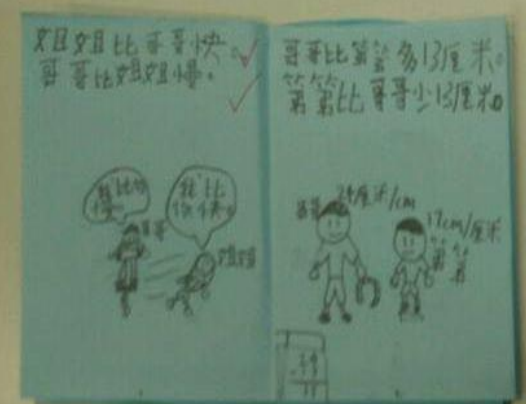 姐姐比哥哥快。
哥哥比姐姐慢。
我比你慢。
我比你快。
哥哥
姐姐
哥哥比弟弟多13厘米。
弟弟比哥哥少13厘米。
哥哥
厘米/cm
17cm/厘米
弟弟